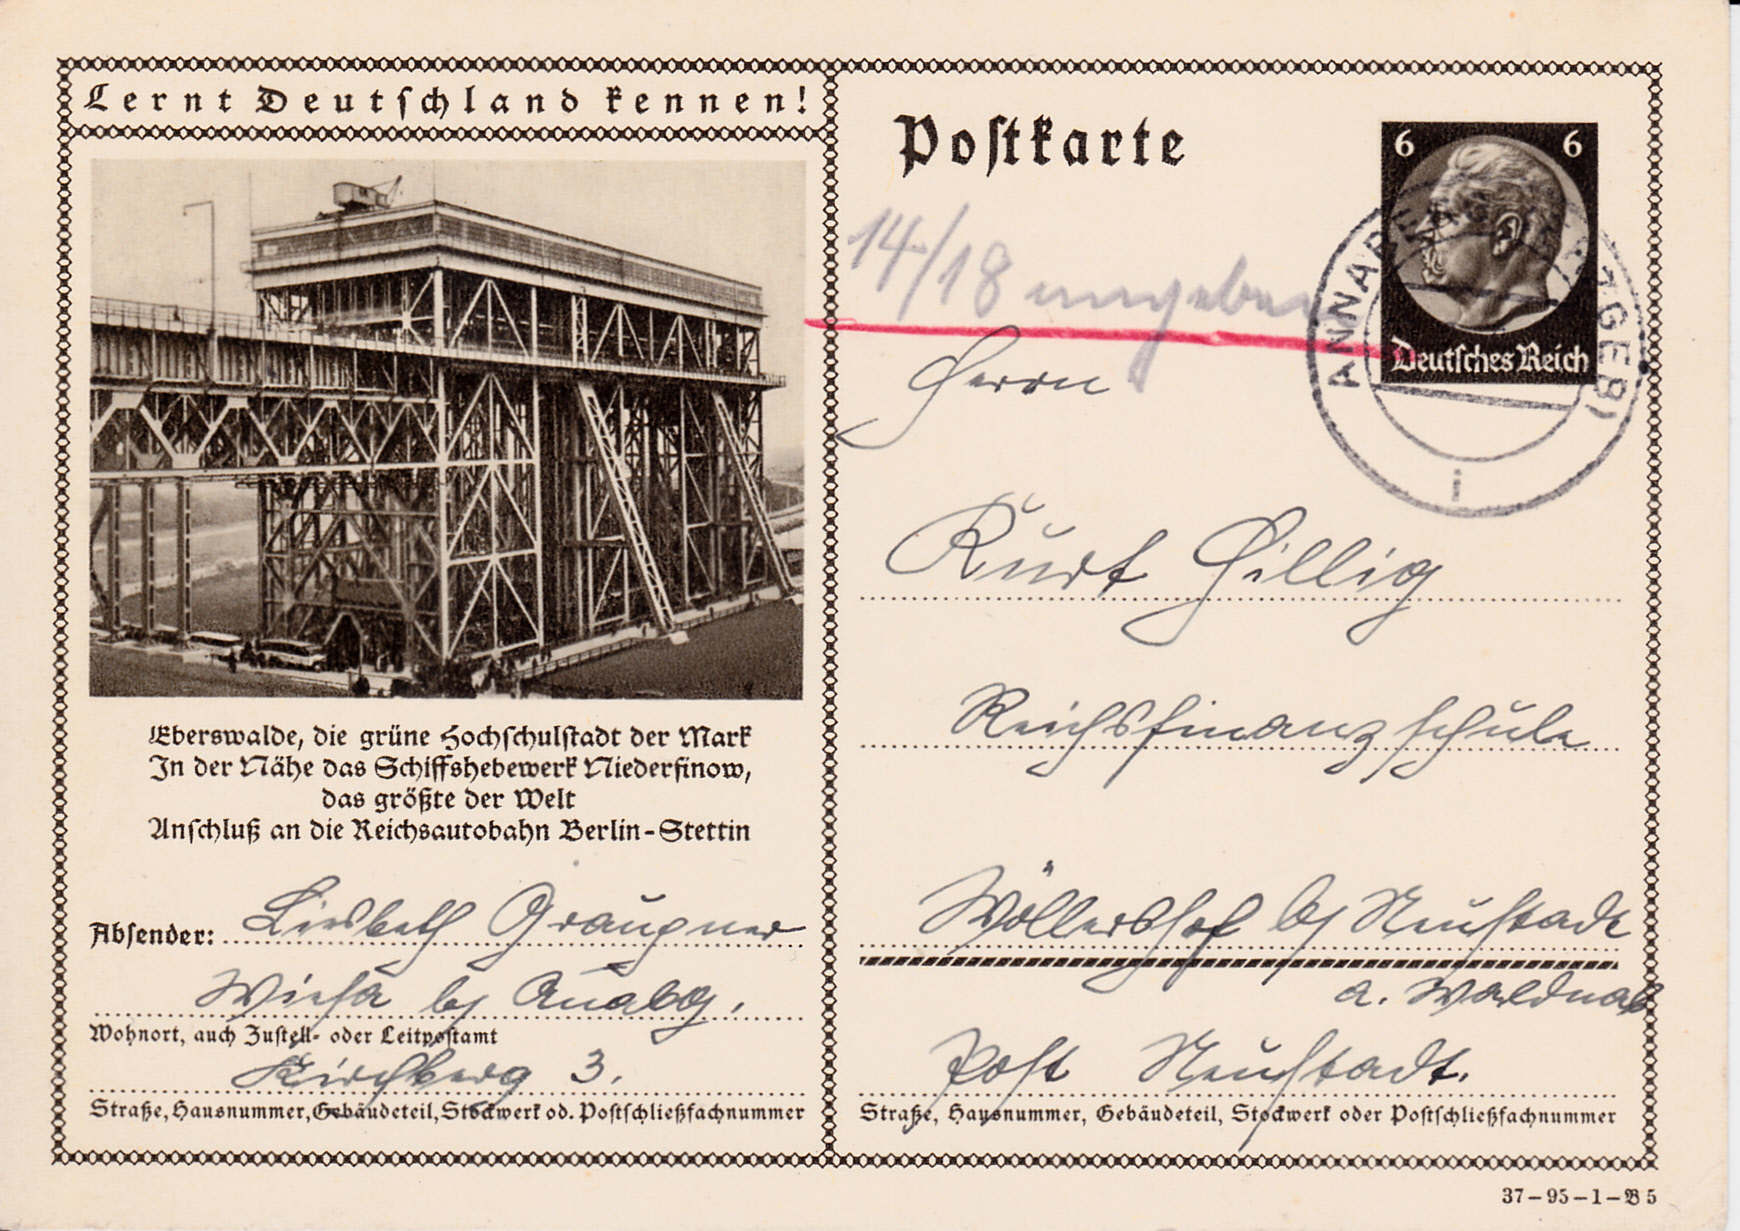 Lernt Deutschland kennen!
Eberswalde, die grüne Hochschulstadt der Mark
In der Nähe das Schiffshebewerk Niederfinow,
das größte der Welt
Anschluß an die Reichsautobahn Berlin-Stettin
Absender: Liesbeth Graupner
Wiesa bj Annabg.
Wohnort, auch Zustell- oder Leitpostamt
Kirchberg 3.
Straße, Hausnummer, Gebäudeteil, Stockwerk od. Postschließfachnummer
Postkarte
6 6
Deutsches Reich
ANNABERG (ERZGEB)
i
14/18
Herrn
Kurt Hillig
Reichsfinanzschule
Wöllershof bj Neustadt
a. Waldnab
Post Neustadt.
Straße, Hausnummer, Gebäudeteil, Stockwerk oder Postschließfachnummer
37-95-1-B5